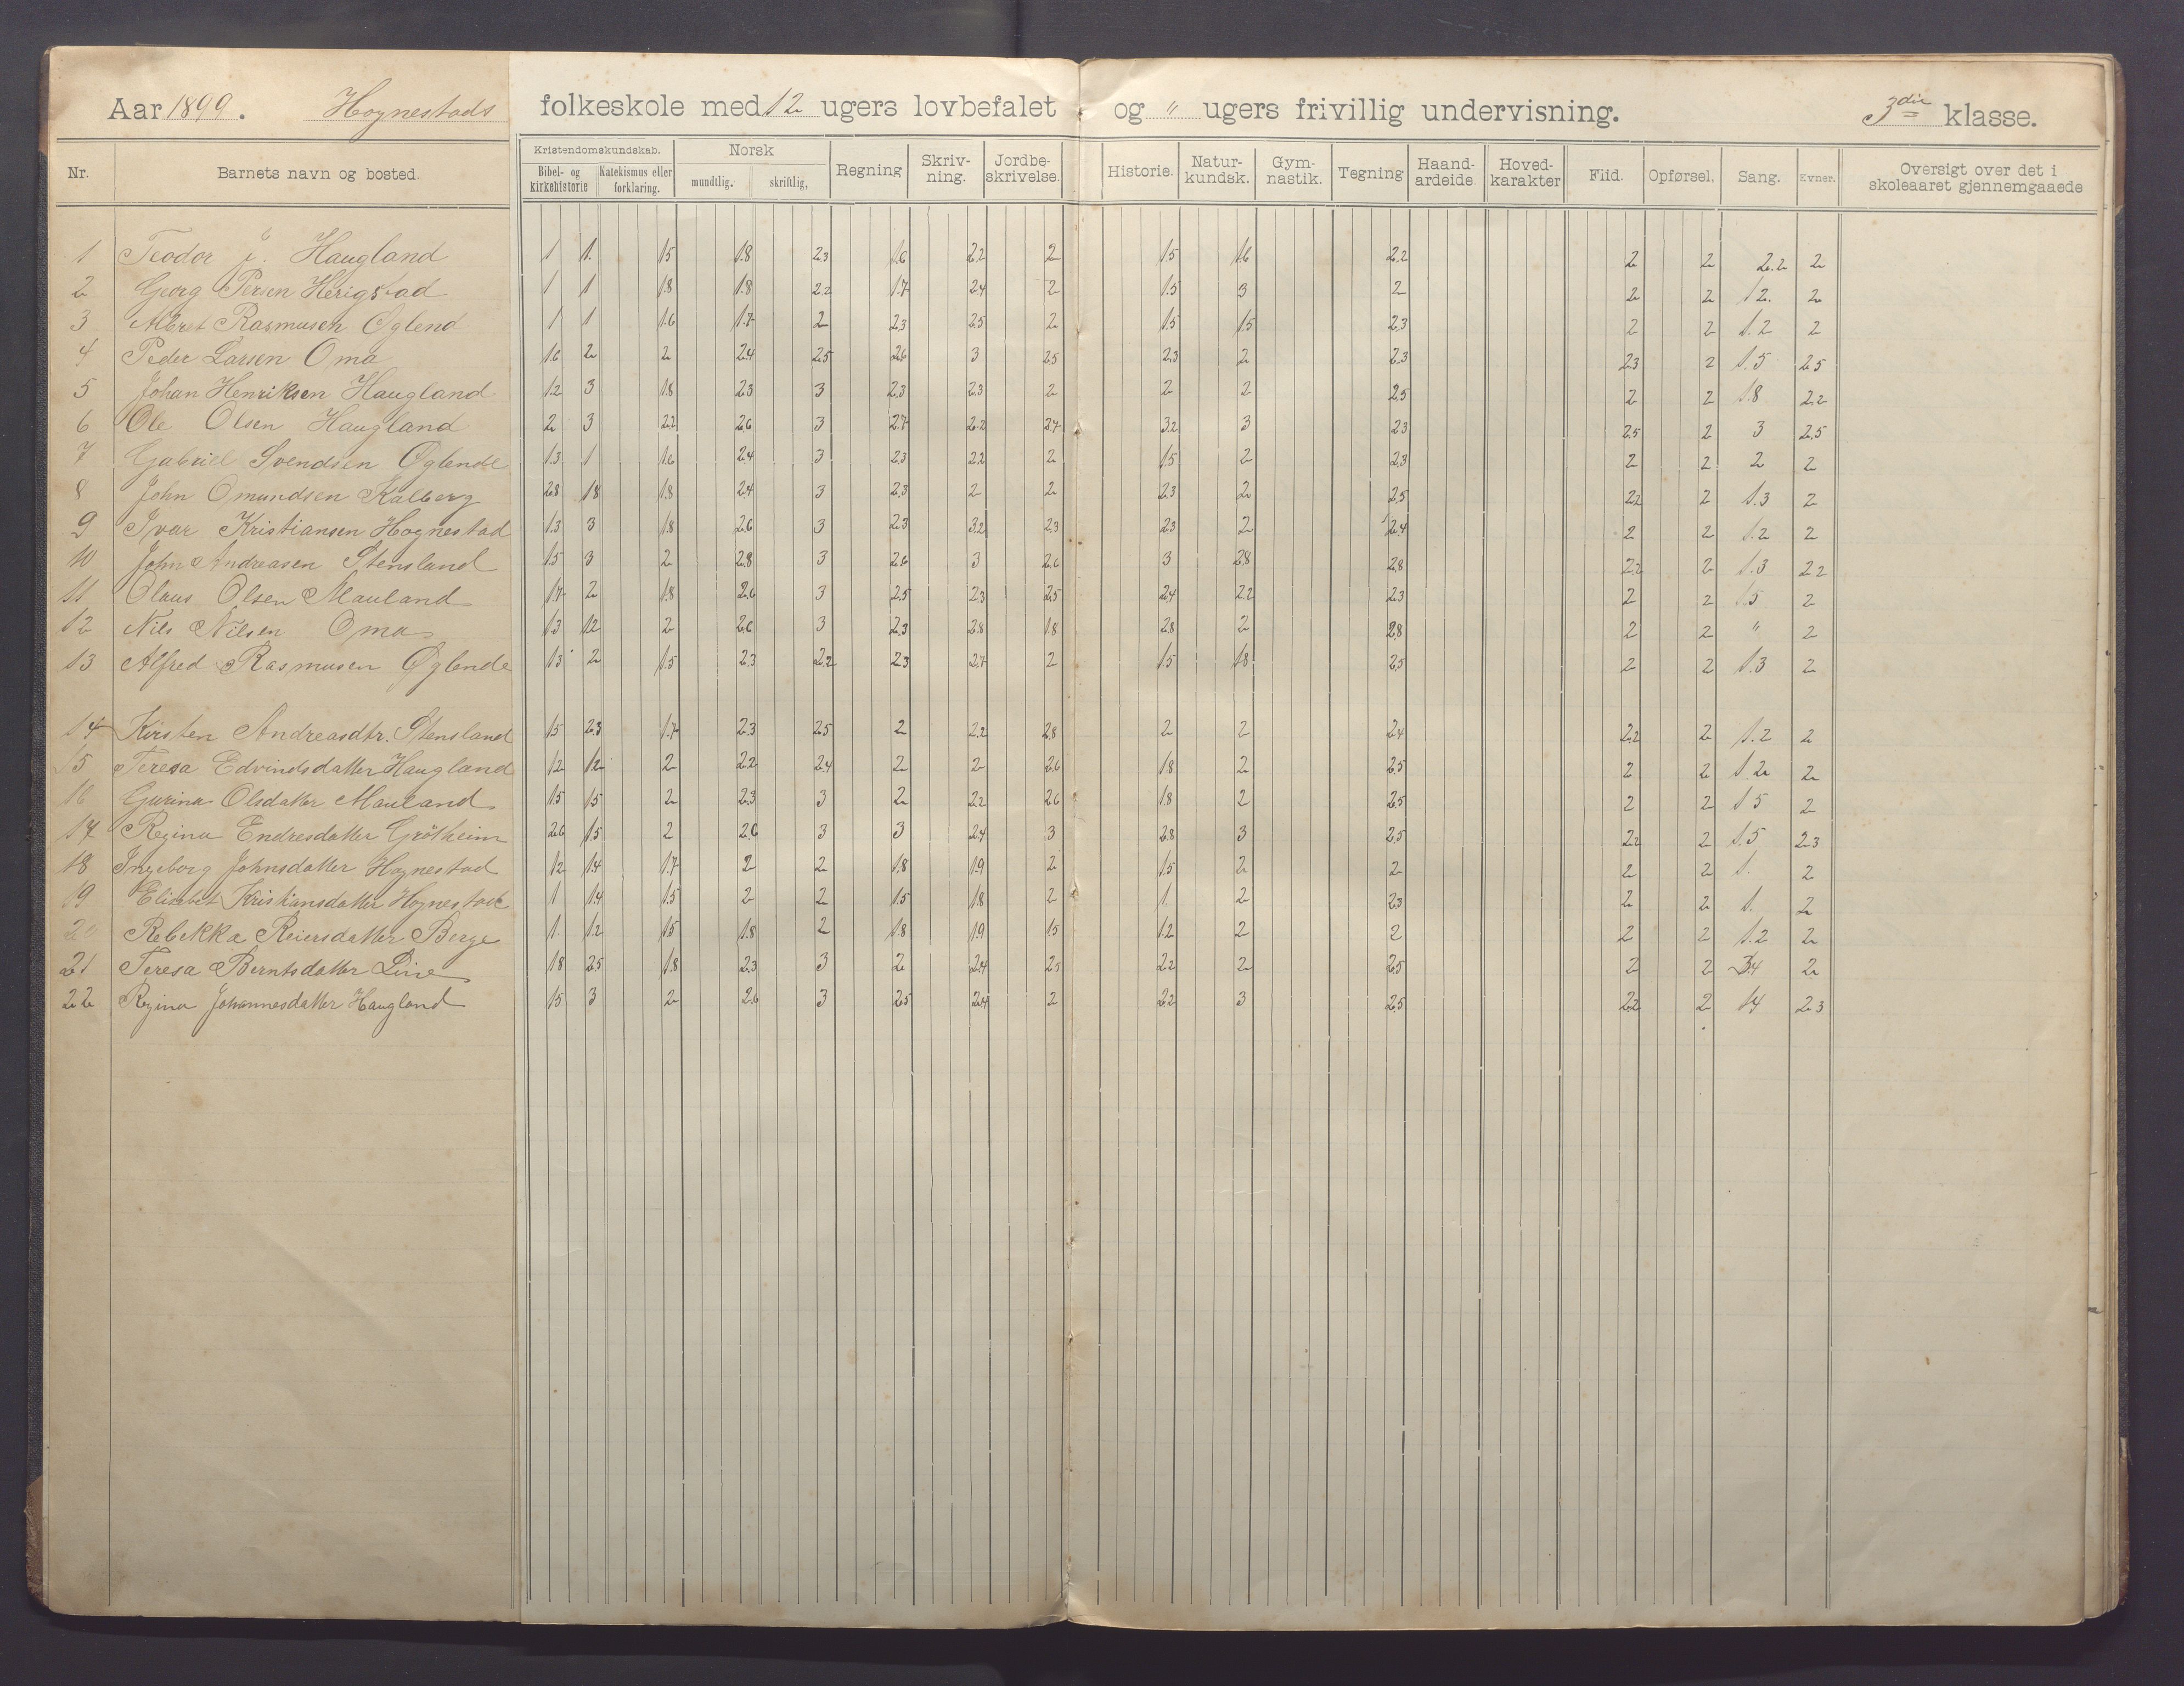 Aar 1899. Hognestads folkeskole med 12 ugers lovbefalet og " ugers frivillig undervisning. 3die klasse.
Nr. Barnets navn og bosted. Kristendomskundskab. Bibel- og kirkehistorie Katekismus eller forklaring. Norsk mundtlig. skriftlig, Regning Skriv-ning. Jordbe-skrivelse. Historie. Natur-kundsk. Gym-nastik. Tegning Haand-ardeide Hoved-karakter Flid. Opførsel, Sang. Evner. Oversigt over det i skoleaaret gjennemgaaede
1 Teodor J. Haugland 1 1. 1.5 1.8 2.3 1.6 2.2 2 1.5 1.6 2.2 2 2 2.2 2
2 Georg Persen Herigstad 1 1 1.8 1.8 2.2 1.7 2.4 2 1.5 3 2 2 2 1 2. 2
3 Albret Rasmusen Øglend 1 1 1.6 1.7 2 2.3 2.5 2 1.5 1.5 2.3 2 2 1.2 2
4 Peder Larsen Oma 1.6 2 2 2.4 2.5 2.6 3 2.5 2.3 2 2.3 2.3 2 1.5 2.5
5 Johan Henriksen Haugland 1.2 3 1.8 2.3 3 2.3 2.3 2 2 2 2.5 2 2 1.8 2.2
6 Ole Olsen Haugland 2 3 2.2 2.6 3 2.7 2.2 2.7 3.2 3 2.3 2.5 2 3 2.5
7 Gabriel Svendsen Øglende 1.3 1 1.6 2.4 3 2.3 2.2 2 1.5 2 2.3 2 2 2 2
8 John Omundsen Kalberg 2.8 1.8 1.8 2.4 3 2.3 2 2 2.3 2 2.5 2.2 2 1.3 2
9 Ivar Kristiansen Hognestad 1.3 3 1.8 2.6 3 2.3 3.2 2.3 2.3 2 2.4 2 2 1.2 2
10 John Andreasen Stensland 1.5 3 2 2.8 3 2.6 3 2.6 3 2.8 2.8 2.2 2 1.3 2.2
11 Olaus Olsen Mauland 1.7 2 1.8 2.6 3 2.5 2.3 2.5 2.4 2.2 2.3 2 2 1.5 2
12 Nils Nilsen Oma 1.3 1.2 2 2.6 3 2.3 2.8 1.8 2.8 2 2.8 2 2 " 2
13 Alfred Rasmusen Øglende 1.3 2 1.5 2.3 2.2 2.3 2.7 2 1.5 1.8 2.5 2 2 1.3 2
14 Kirsten Andreasdtr. Stensland 1.5 2.3 1.7 2.3 2.5 2 2.2 2.8 2 2 2.4 2.2 2 1.2 2
15 Teresa Edvindsdatter Haugland 1.2 1.2 2 2.2 2.4 2 2 2.6 1.8 2 2.5 2 2 1.2 2
16 Gurina Olsdatter Mauland 1.5 1.5 2 2.3 3 2 2.2 2.6 1.8 2 2.5 2 2 1.5 2
17 Regina Endresdatter Grötheim 2.6 1.5 2 2.6 3 3 2.4 3 2.8 3 2.5 2.2 2 1.5 2.3
18 Ingeborg Johnsdatter Hognestad 1.2 1.4 1.7 2 2 1.8 1.9 2 1.5 2 2 2 2 1. 2
19 Elisabet Kristiansdatter Hognestad 1 1.4 1.5 2 2 1.5 1.8 2 1 2 2.3 2 2 1. 2
20 Rebekka Reiersdatter Berge 1. 1.2 1.5 1.8 2 1.8 1.9 1.5 1.2 2 2 2 2 1.2 2
21 Teresa Berntsdatter Line 1.8 2.5 1.8 2.3 3 2 2.4 2.5 2.2 2 2.5 2 2 3.4 2
22 Regina Johannesdatter Haugland 1.5 3 2 2.6 3 2.5 2.4 2 2.2 3 2.5 2.2 2 1.4 2.3